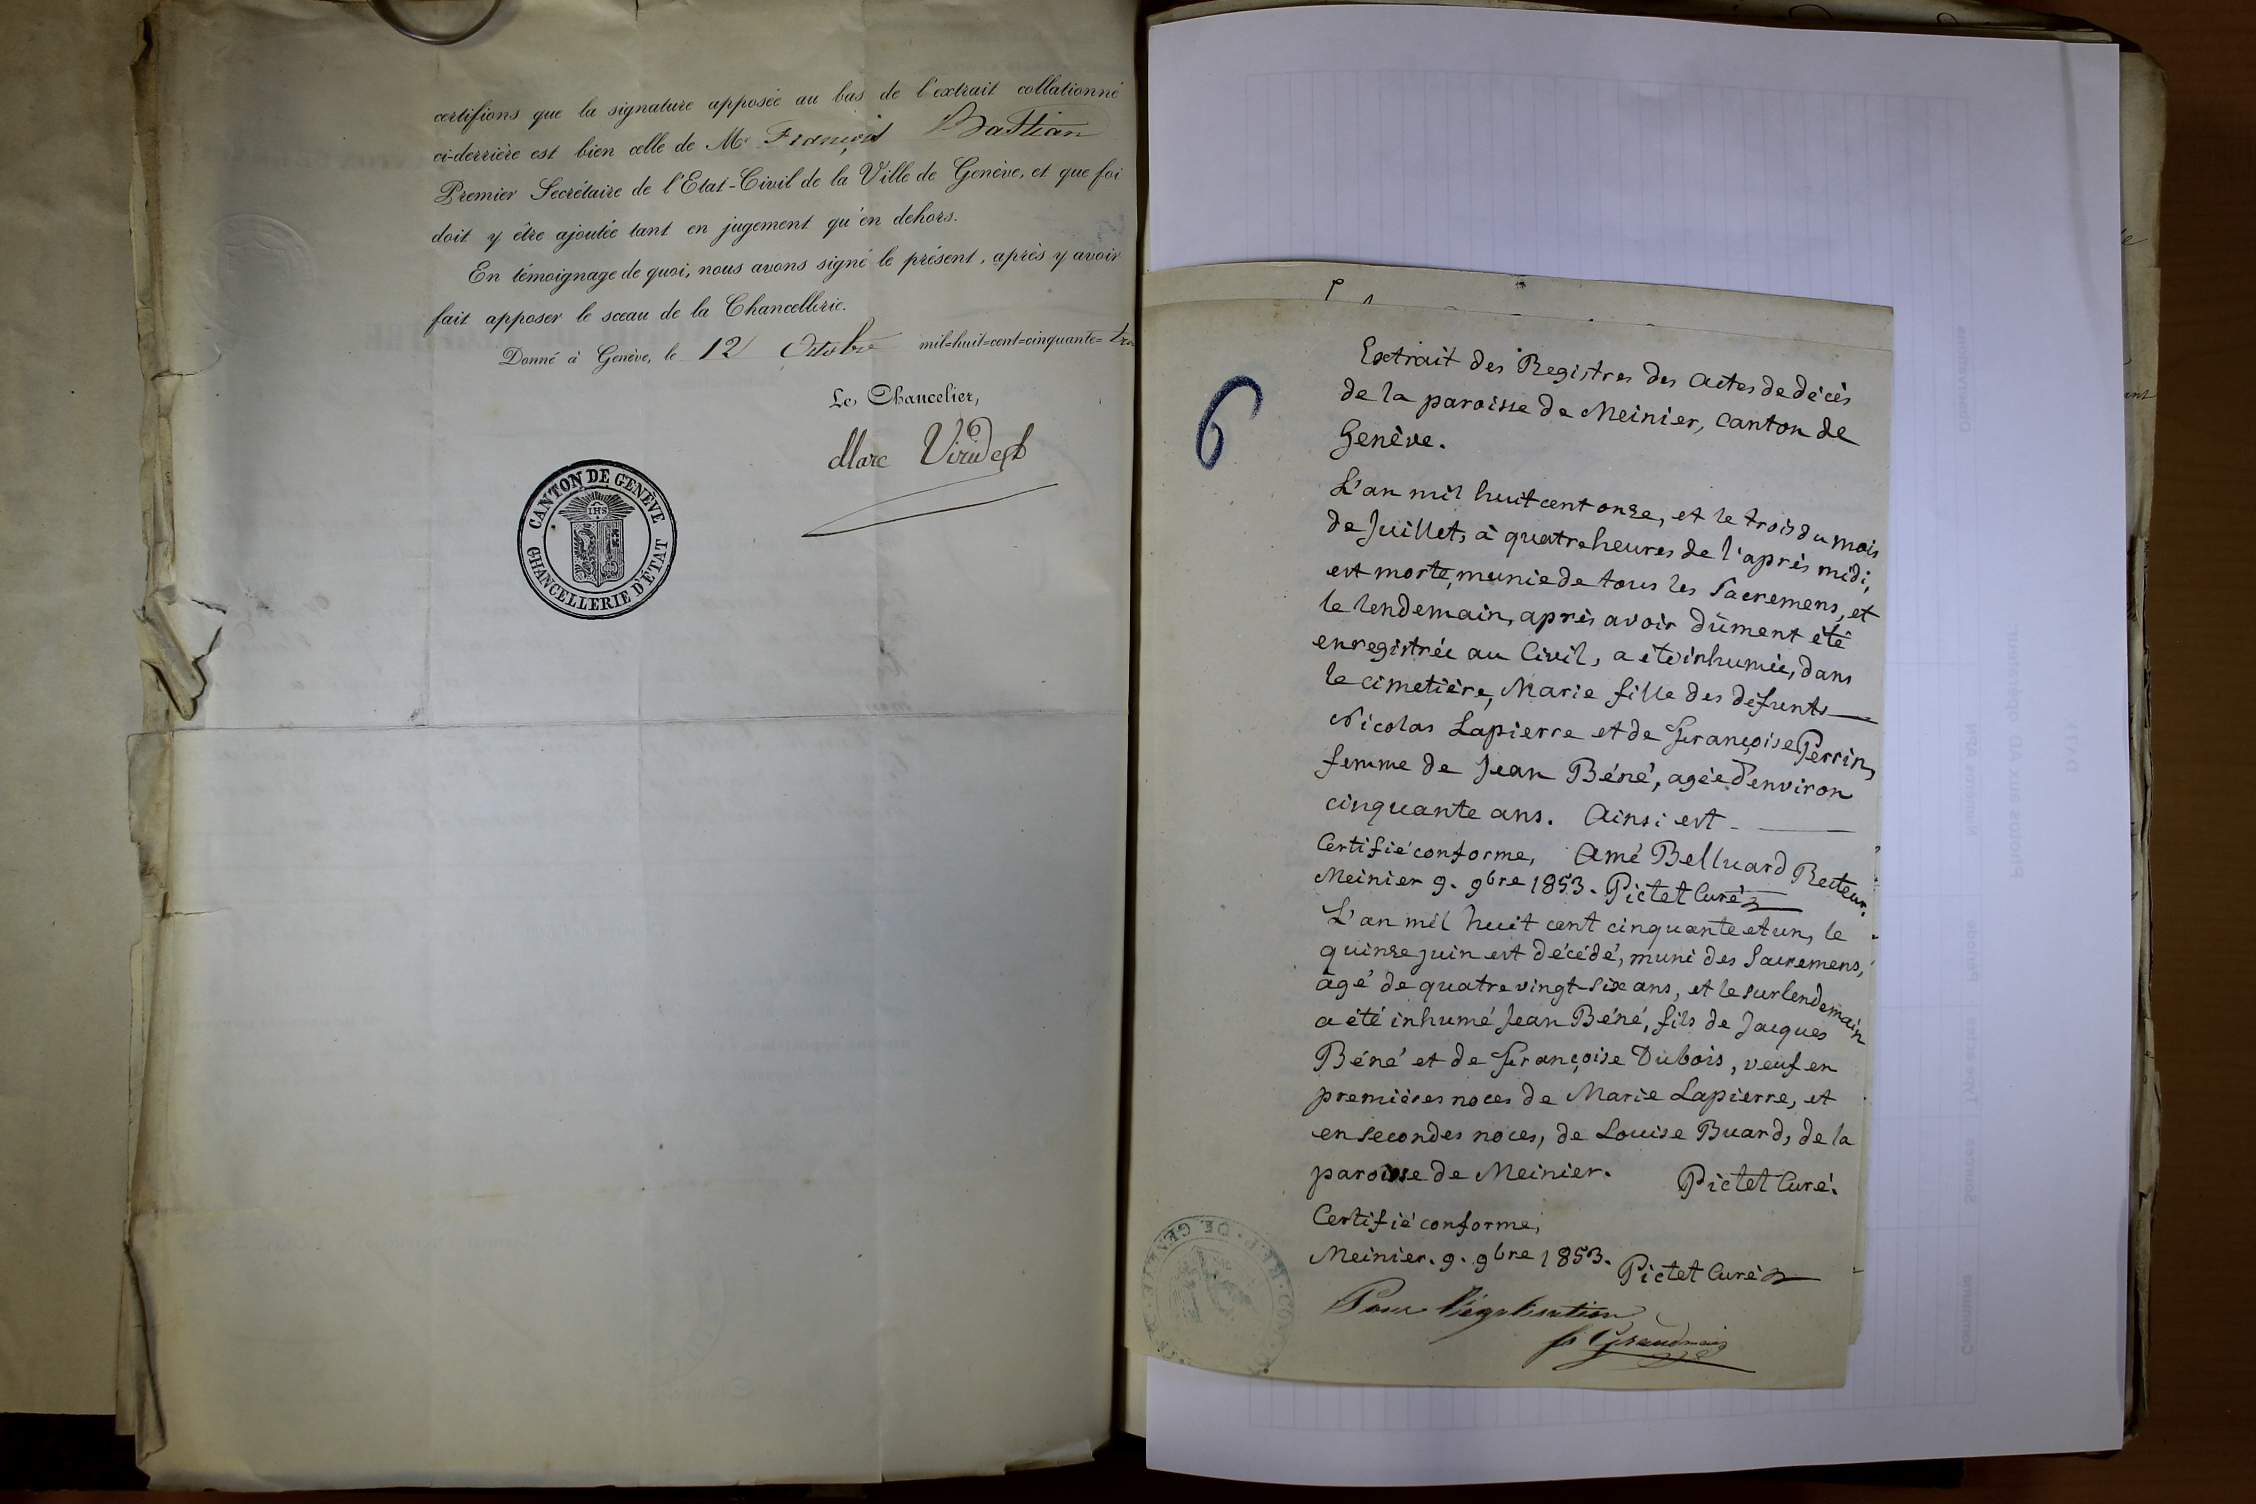 certifions que la signature apposée au bas de l'extrait collationné
ci-derrière est bien celle de Mr François Bastian
Premier Secrétaire de l'Etat-Civil de la Ville de Genève, et que foi
doit y être ajoutée tant en jugement qu'en dehors.
En témoignage de quoi, nous avons signé le présent, après y avoir
fait apposer le sceau de la Chancellerie.
Donné à Genève, le 12 Octobre mil=huit=cent=cinquante=
Le Chancelier,
Marc Viridet
CANTON DE GENÈVE
IHS
CHANCELLERIE D'ÉTAT
6
Extrait des Registres des actes de décès
de la paroisse de Meinier, Canton de
Genève.
L'an mil huit cent onze, et le trois du mois
de Juillet, à quatre heures de l'après midi,
est morte, munie de tous les Sacremens, et
le lendemain, après avoir dûment été
enregistrée au Civil, a été inhumée, dans
le cimetière, Marie fille des défunts
Nicolas Lapierre et de Françoise Perrin,
femme de Jean Béné, agée d'environ
cinquante ans. Ainsi est
Certifié conforme, Amé Belluard Recteur.
Meinier 9. 9bre 1853. Pictet Curé
L'an mil huit cent cinquante et un, le
quinze juin est décédé, muni des Sacremens,
agé de quatre vingt-six ans, et le surlendemain
a été inhumé Jean Béné, fils de Jacques
Béné et de Françoise Dubois, veuf en
premières noces de Marie Lapierre, et
en secondes noces, de Louise Buard, de la
paroisse de Meinier. Pictet Curé.
Certifié conforme,
Meinier. 9. 9bre 1853. Pictet Curé
Pour légalisation